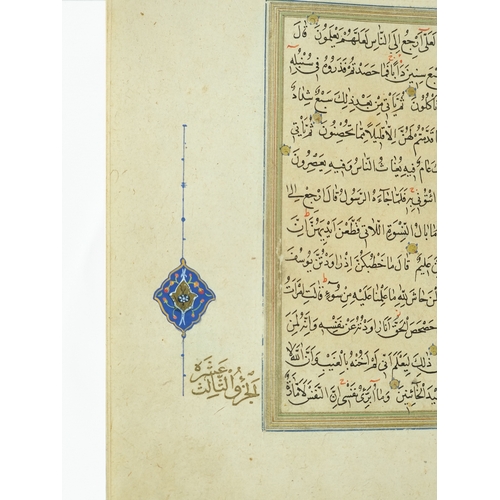 لَعَلِّي أَرْجِعُ إِلَى النَّاسِ لَعَلَّهُمْ يَعْلَمُونَ قَالَ
بْعَ سِنِينَ دَأَبًا فَمَا حَصَدْتُمْ فَذَرُوهُ فِي سُنْبُلِهِ
تَأْكُلُونَ ثُمَّ يَأْتِي مِنْ بَعْدِ ذَلِكَ سَبْعٌ شِدَادٌ
قَدَّمْتُمْ لَهُنَّ إِلَّا قَلِيلًا مِمَّا تُحْصِنُونَ ثُمَّ يَأْتِي
عَامٌ فِيهِ يُغَاثُ النَّاسُ وَفِيهِ يَعْصِرُونَ
ائْتُونِي بِهِ فَلَمَّا جَاءَهُ الرَّسُولُ قَالَ ارْجِعْ إِلَى
مَا بَالُ النِّسْوَةِ اللَّاتِي قَطَّعْنَ أَيْدِيَهُنَّ إِنَّ
عَلِيمٌ قَالَ مَا خَطْبُكُنَّ إِذْ رَاوَدْتُنَّ يُوسُفَ
نَ حَاشَ لِلَّهِ مَا عَلِمْنَا عَلَيْهِ مِنْ سُوءٍ قَالَتِ امْرَأَتُ
حَصْحَصَ الْحَقُّ أَنَا رَاوَدْتُهُ عَنْ نَفْسِهِ وَإِنَّهُ لَمِنَ
ذَلِكَ لِيَعْلَمَ أَنِّي لَمْ أَخُنْهُ بِالْغَيْبِ وَأَنَّ اللَّهَ لَا
يْدَ الْخَائِنِينَ وَمَا أُبَرِّئُ نَفْسِي إِنَّ النَّفْسَ لَأَمَّارَةٌ
الجزو الثالث عشرة